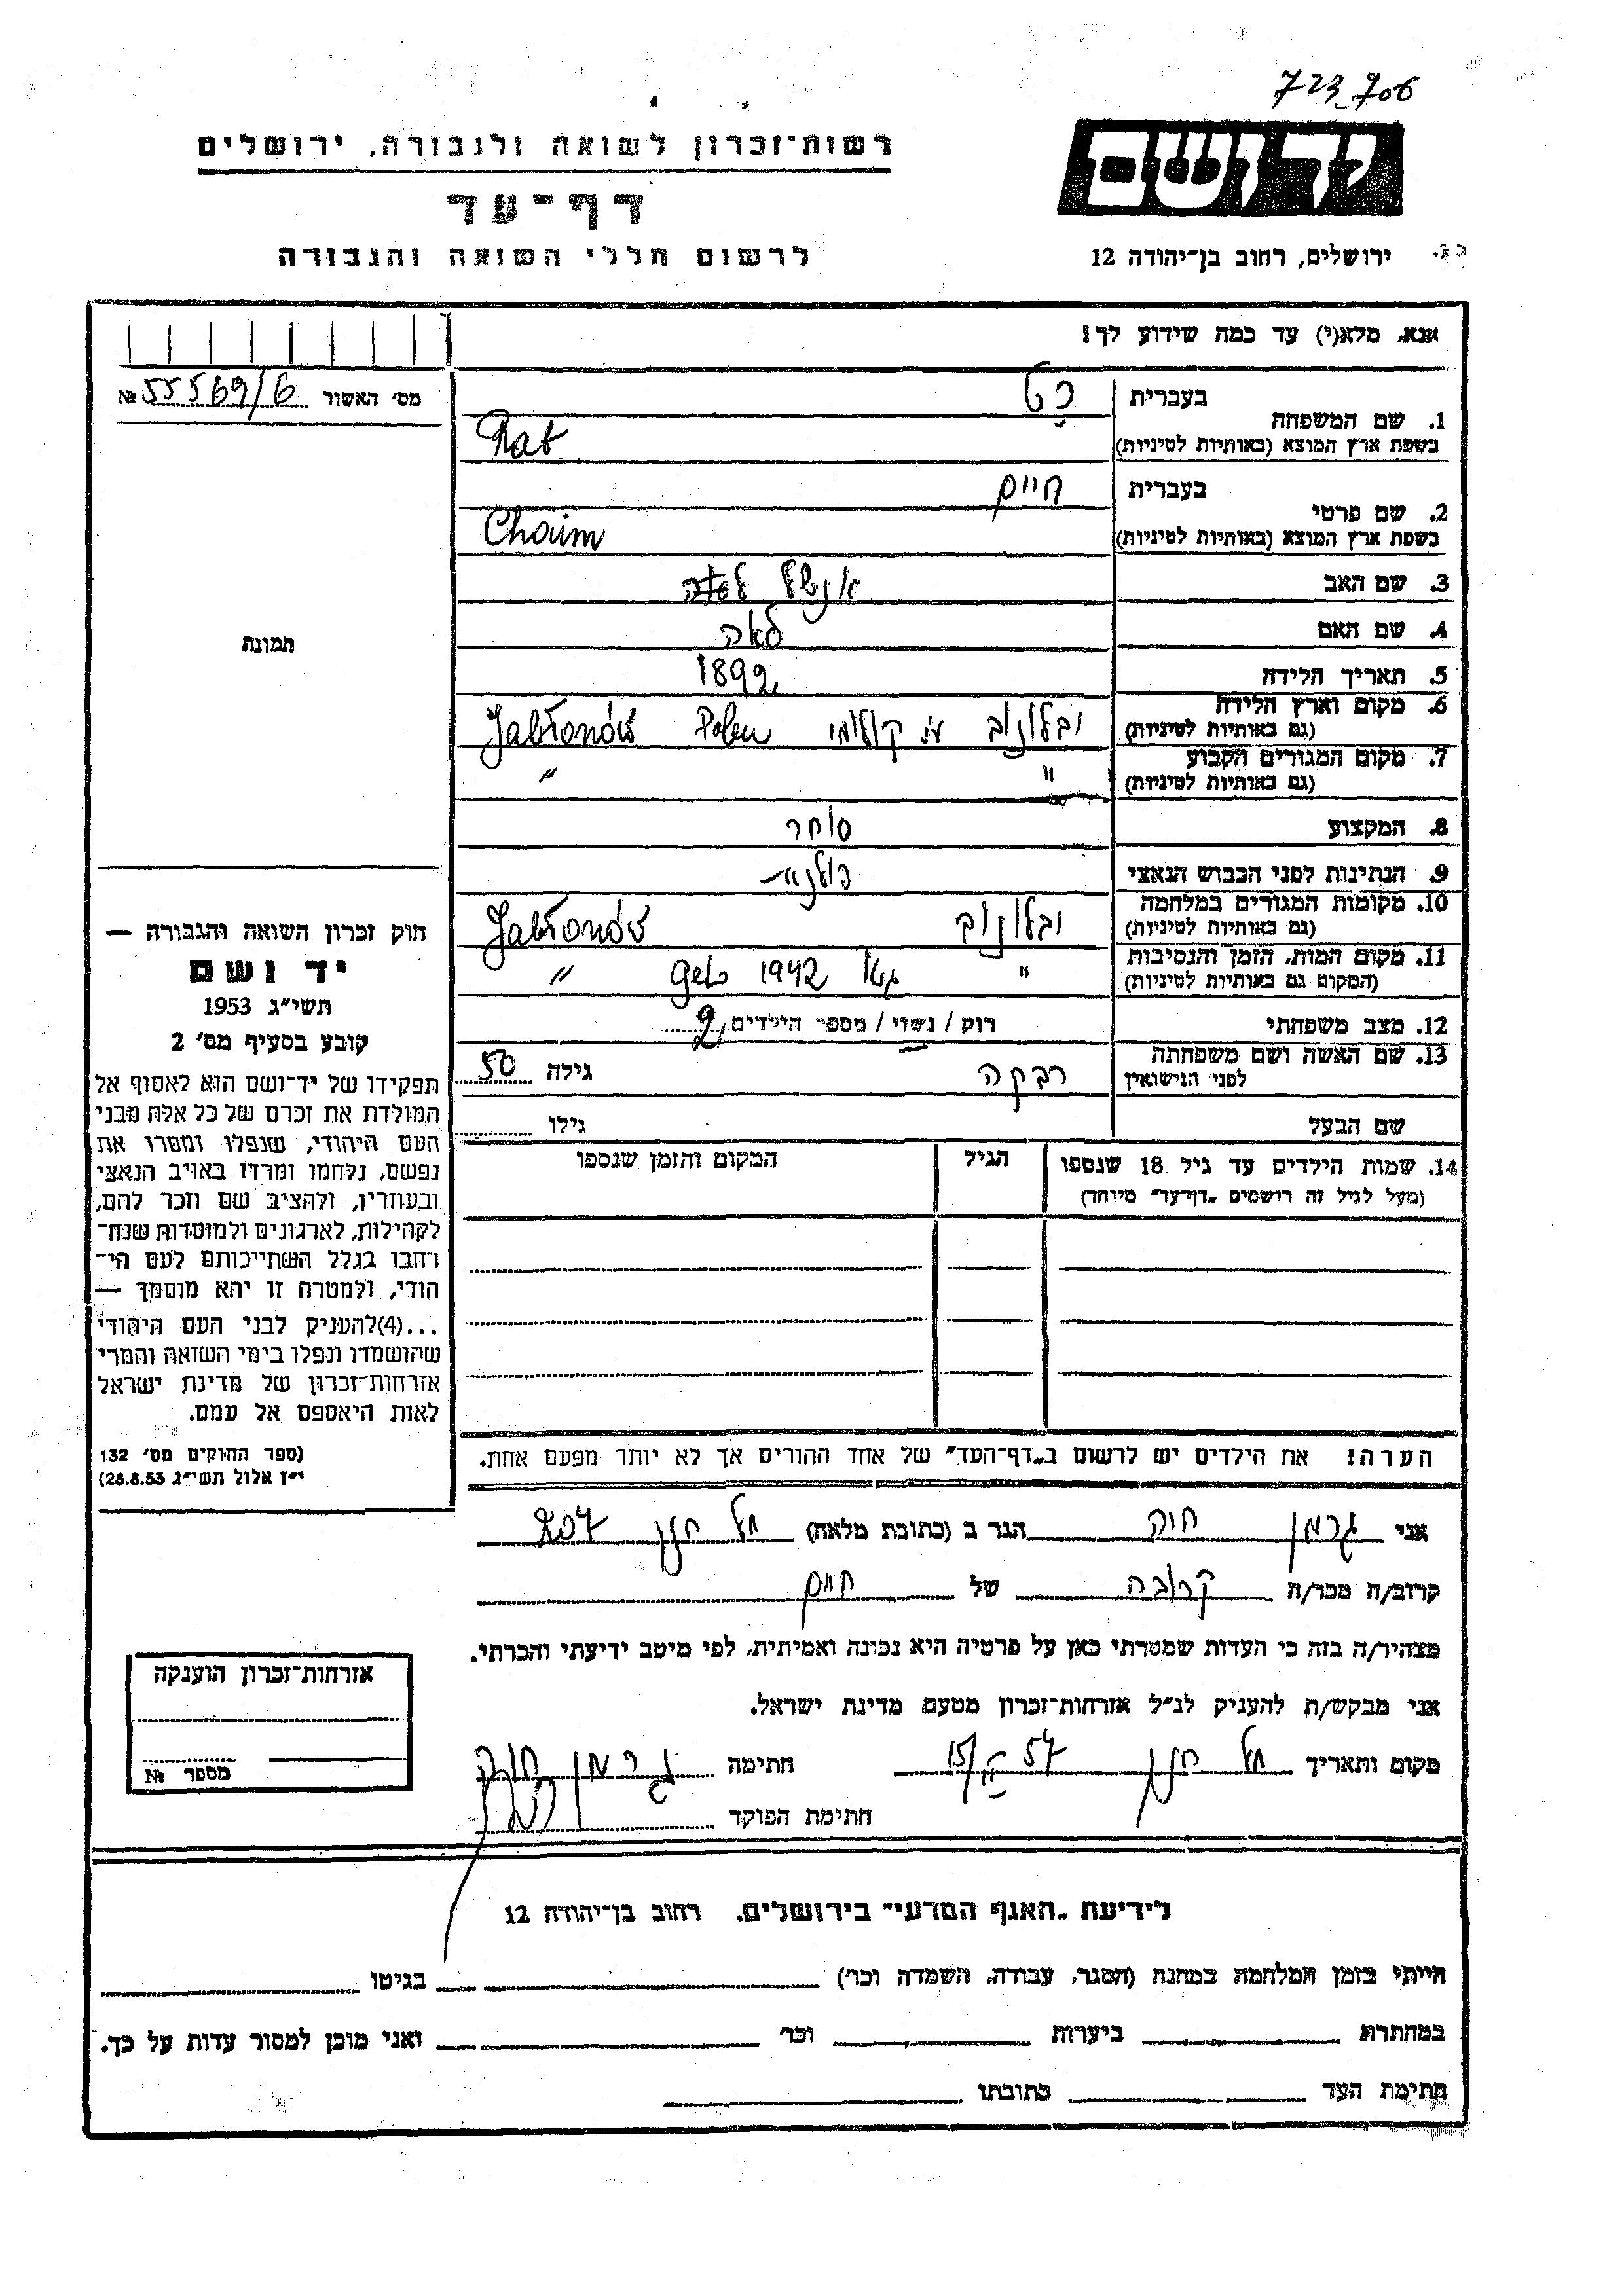 723 706
רשות-זכרון לשואה ולגבורה, ירושלים
דף-עד
לרשום חללי השואה והגבורה
יד ושם
ירושלים, רחוב בן-יהודה 12
אנא, מלא(י) עד כמה שידוע לך!
מס' האשור 55569/6 №
תמונה
חוק זכרון השואה והגבורה —
יד ושם
תשי"ג 1953
קובע בסעיף מס' 2
תפקידו של יד-ושם הוא לאסוף אל
המולדת את זכרם של כל אלה מבני
העם היהודי, שנפלו ומסרו את
נפשם, נלחמו ומרדו באויב הנאצי
ובעוזריו, ולהציב שם וזכר להם,
לקהילות, לארגונים ולמוסדות שנח-
רחבו בגלל השתייכותם לעם הי-
הודי, ולמטרה זו יהא מוסמך —
...(4)להעניק לבני העם היהודי
שהושמדו ונפלו בימי השואה והמרי
אזרחות-זכרון של מדינת ישראל
לאות היאספם אל עמם.
(ספר החוקים מס' 132
י"ז אלול תשי"ג 28.8.53)
1. שם המשפחה בעברית
בשפת ארץ המוצא (באותיות לטיניות)
2. שם פרטי בעברית חיים
בשפת ארץ המוצא (באותיות לטיניות) Chaim
3. שם האב אנשל
4. שם האם לאה
5. תאריך הלידה 1892
6. מקום וארץ הלידה (גם באותיות לטיניות) יבלונוב ע"י קולומי Polen Jabłonów
7. מקום המגורים הקבוע (גם באותיות לטיניות) " "
8. המקצוע סוחר
9. הנתינות לפני הכבוש הנאצי
10. מקומות המגורים במלחמה (גם באותיות לטיניות) יבלונוב Jabłonów
11. מקום המות, הזמן והנסיבות (המקום גם באותיות לטיניות) " 1942 "
12. מצב משפחתי רוק / נשוי / מספר הילדים 2
13. שם האשה ושם משפחתה לפני הנישואין רבקה גילה 50
שם הבעל גילו
14. שמות הילדים עד גיל 18 שנספו הגיל המקום והזמן שנספו
(מעל לגיל זה רושמים „דף-עד" מיוחד)
הערה! את הילדים יש לרשום ב„דף-העד" של אחד ההורים אך לא יותר מפעם אחת.
אני גרמן חוה הגר ב (כתובת מלאה) תל חנן 207
קרוב/ה מכר/ה קרובה של חיים
מצהיר/ה בזה כי העדות שמסרתי כאן על פרטיה היא נכונה ואמיתית, לפי מיטב ידיעתי והכרתי.
אני מבקש/ת להעניק לנ"ל אזרחות-זכרון מטעם מדינת ישראל.
מקום ותאריך תל חנן חתימה גרמן חוה
חתימת הפוקד
אזרחות-זכרון הוענקה
מספר №
לידיעת „האגף המדעי" בירושלים. רחוב בן-יהודה 12
הייתי בזמן המלחמה במחנה (הסגר, עבודה, השמדה וכר') בגיטו
במחתרת ביערות וכר' ואני מוכן למסור עדות על כך.
חתימת העד כתובתו